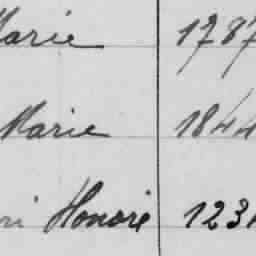 Marie 1787
Marie 1844
ri Honoré 123